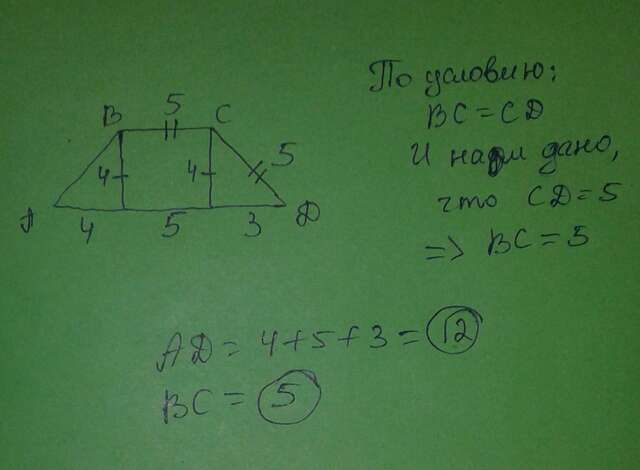 По условию:
BC = CD
И нам дано,
что CD = 5
=> BC = 5
5
B C
4 4 5
A 4 5 3 D
AD = 4 + 5 + 3 = 12
BC = 5